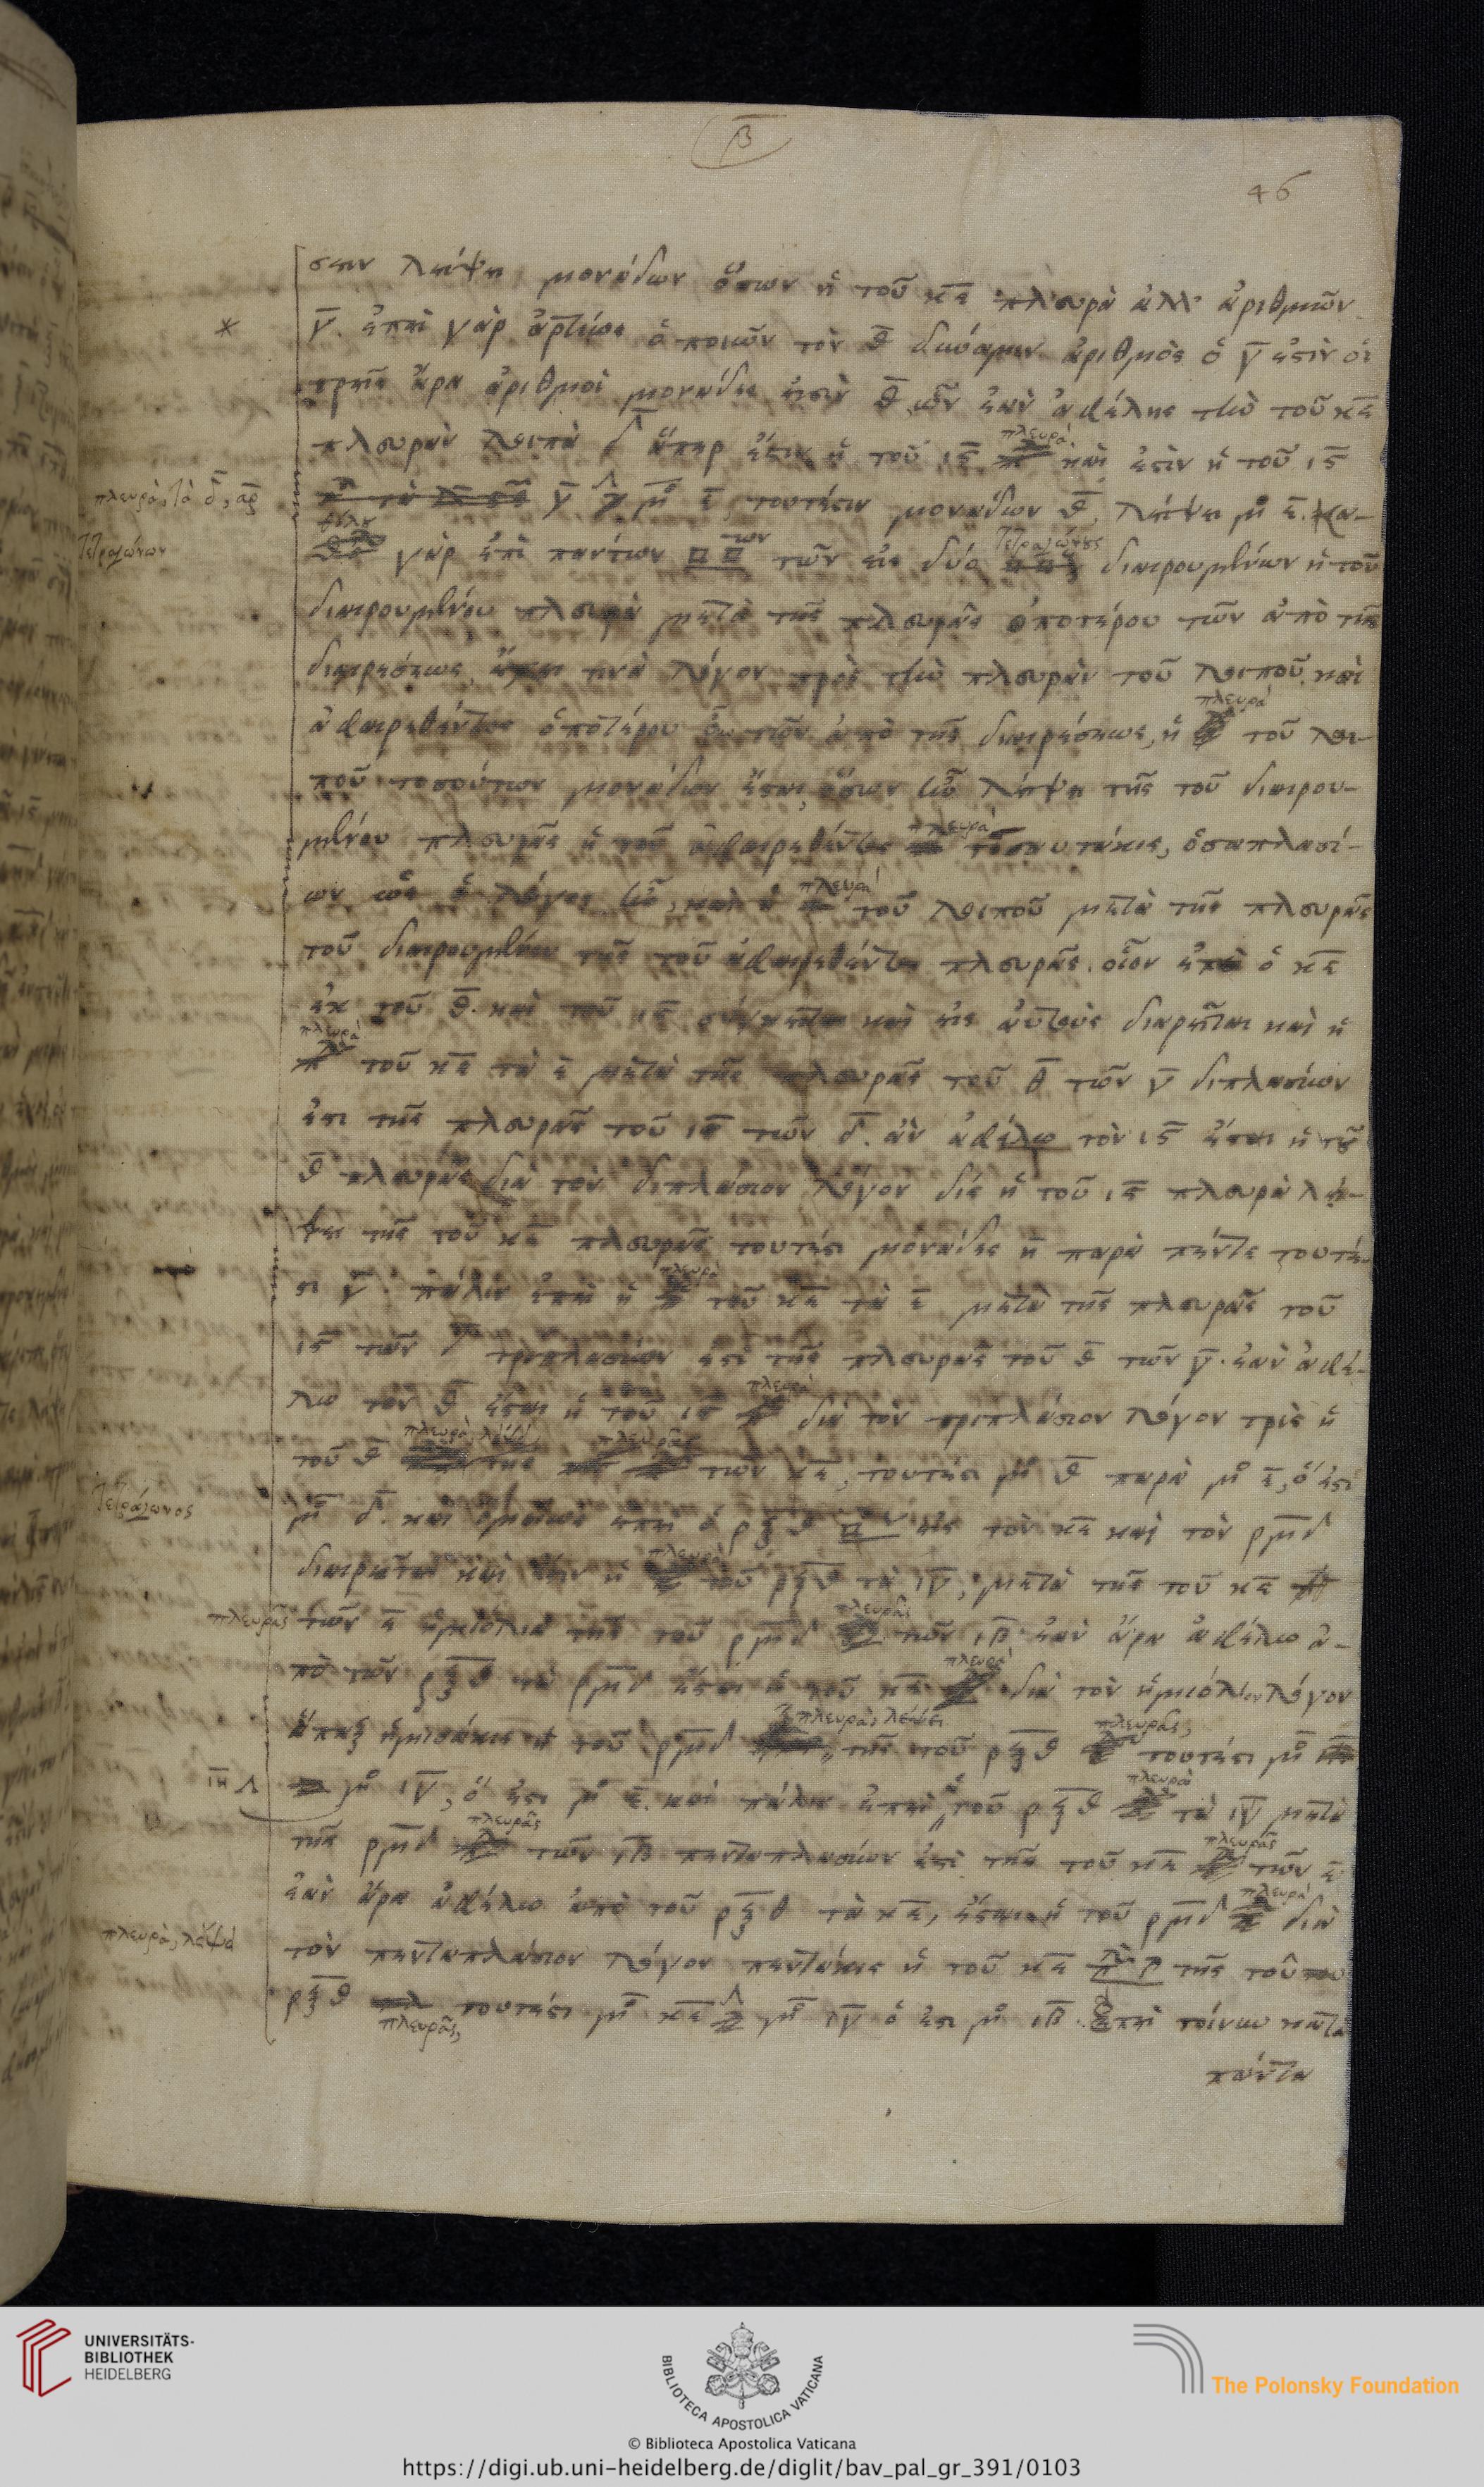 β
46
σειν λείψη μονάδων ὅσων ἡ τοῦ κε πλευρὰ ἀλλ' ἀριθμῶν
γ. ἐπεὶ γὰρ ὁ ποιῶν τὸν θ δύναμιν ἀριθμὸς ὁ γ ἐστὶν οἱ
τρεῖς ἄρα ἀριθμοὶ μονάδες εἰσὶν θ ὧν ἐὰν ἀφέλῃς τὴν τοῦ κε
πλευρὰν λοιπὰ δ ἅπερ ἐστὶν ἡ τοῦ ις πλευρά. καὶ ἐστὶν ἡ τοῦ ις
πλευρὰ, τὰ δ, γ Λ μο ε, τουτέστιν μονάδων θ, λείψει μο ε. κα-
τετραγώνων
γὰρ ἐπὶ πάντων □ □ων τῶν εἰς δύο τετραγώνους διαιρουμένων ἡ τοῦ
διαιρουμένου πλευρὰ μετὰ τῆς πλευρᾶς ὁποτέρου τῶν ἀπὸ τῆς
διαιρέσεως, τινὰ λόγον πρὸς τὴν πλευρὰν τοῦ λοιποῦ. καὶ
ἀφαιρεθέντος ὁποτέρου τῶν ἀπὸ τῆς διαιρέσεως, ἡ πλευρὰ τοῦ λοι-
ποῦ τοσούτων μονάδων ἔσται, ὅσων λείψη τῆς τοῦ διαιρου-
μένου πλευρᾶς ἡ τοῦ ἀφαιρεθέντος πλευρὰ τοσαυτάκις, ὁσαπλασί-
ων ὁ λόγος ἦν, καὶ ἡ πλευρὰ τοῦ λοιποῦ μετὰ τῆς πλευρᾶς
τοῦ διαιρουμένου τῆς τοῦ ἀφαιρεθέντος πλευρᾶς. οἷον ἐπεὶ ὁ κε
ἐκ τοῦ θ. καὶ τοῦ ις σύγκειται καὶ εἰς αὐτοὺς διαιρεῖται καὶ ἡ
πλευρὰ τοῦ κε τὰ ε μετὰ τῆς πλευρᾶς τοῦ θ τῶν γ διπλασίων
ἐστι τῆς πλευρᾶς τοῦ ις τῶν δ. ἂν ἀφέλω τὸν ις ἔσται ἡ τοῦ
θ πλευρᾶς διὰ τὸν διπλάσιον λόγον δὶς ἡ τοῦ ις πλευρὰ λεί-
ψει τῆς τοῦ κε πλευρᾶς τουτέστι μονάδες η παρὰ πέντε τουτέ-
στι γ. πάλιν ἐπεὶ ἡ πλευρὰ τοῦ κε τὰ ε μετὰ τῆς πλευρᾶς τοῦ
ις τῶν δ τριπλασίων ἐστὶ τῆς πλευρᾶς τοῦ θ τῶν γ. ἐὰν ἀφέ-
λω τὸν θ ἔσται ἡ τοῦ ις πλευρὰ διὰ τὸν τριπλάσιον λόγον τρὶς ἡ
τοῦ θ πλευρὰ, λείψει, τῆς πλευρᾶς τῶν κε, τουτέστι μο θ παρὰ μο ε, ὅ ἐστι
τετράγωνος
μο δ. καὶ ὁμοίως ἐπεὶ ὁ ρξθ □ος εἰς τὸν κε καὶ τὸν ρμδ
διαιρεῖται καὶ ἐστὶν ἡ πλευρὰ τοῦ ρξθ τὰ ιγ, μετὰ τῆς τοῦ κε
πλευρᾶς τῶν ε ἡμιόλια τῆς τοῦ ρμδ πλευρᾶς τῶν ιβ. ἐὰν ἄρα ἀφέλω ἀ-
πὸ τῶν ρξθ τὰ ρμδ ἔσται ἡ τοῦ κε πλευρὰ διὰ τὸν ἡμιόλιον λόγον
ἅπαξ ἡμισάκις ἡ τοῦ ρμδ πλευρὰ, λείψει τῆς τοῦ ρξθ πλευρᾶς, τουτέστι μο
ιη Λ μο ιγ, ὅ ἐστι μο ε. καὶ πάλιν ἐπεὶ ἡ τοῦ ρξθ πλευρὰ τὰ ιγ μετὰ
τῆς ρμδ πλευρᾶς τῶν ιβ πενταπλασίων ἐστὶ τῆς τοῦ κε πλευρᾶς τῶν ε
ἐὰν ἄρα ἀφέλω ἀπὸ τοῦ ρξθ τὰ κε, ἔσται ἡ τοῦ ρμδ πλευρὰ διὰ
πλευρὰ, λείψει
τὸν πενταπλάσιον λόγον πεντάκις ἡ τοῦ κε τῆς τοῦ
ρξθ πλευρᾶς, τουτέστι μο κε Λ μο ιγ ὅ ἐστι μο ιβ. Ἐπεὶ τοίνυν κατὰ
πάντα
UNIVERSITÄTS-
BIBLIOTHEK
HEIDELBERG
BIBLIOTECA APOSTOLICA VATICANA
The Polonsky Foundation
© Biblioteca Apostolica Vaticana
https://digi.ub.uni-heidelberg.de/diglit/bav_pal_gr_391/0103